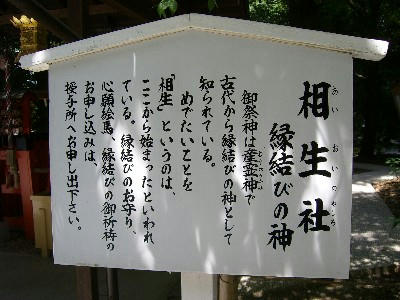 相生社
あいおいのやしろ
縁結びの神
御祭神は産霊神で
古代から縁結びの神として
知られている。
めでたいことを
「相生」というのは、
ここから始まったといわれ
ている。縁結びのお守り、
心願絵馬、縁結びの御祈祷の
お申し込みは、
授与所へお申し出下さい。